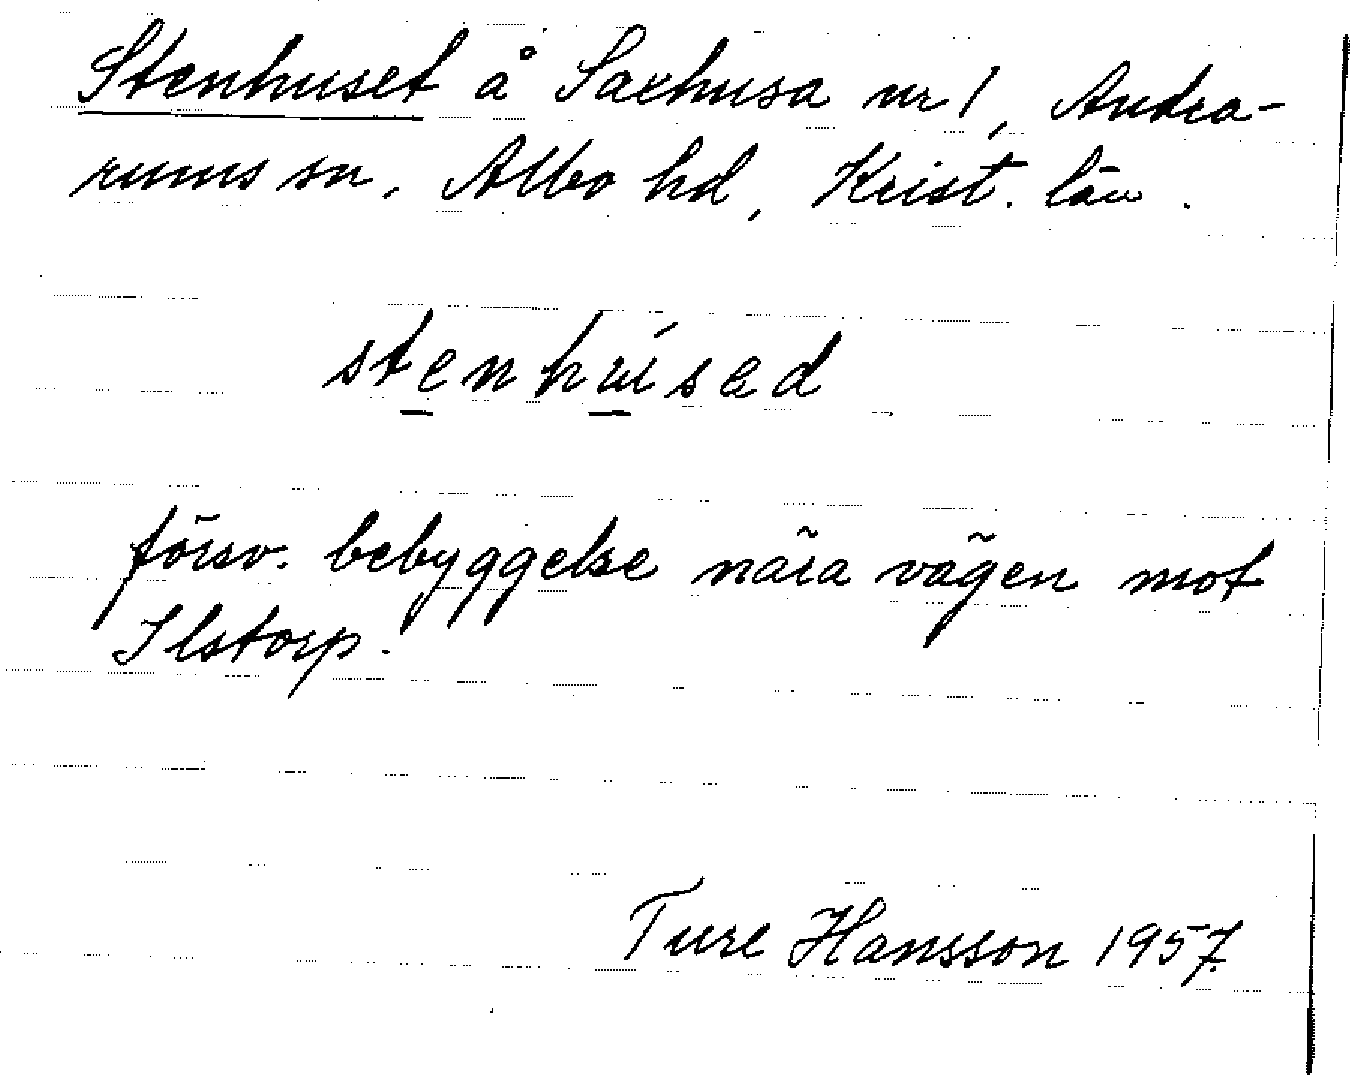 Stenhuset å Saxhusa nr 1, Andra-
rums sn, Albo hd, Krist. län.
stenhúsed
försv. bebyggelse nära vägen mot
Ilstorp.
Ture Hansson 1957.